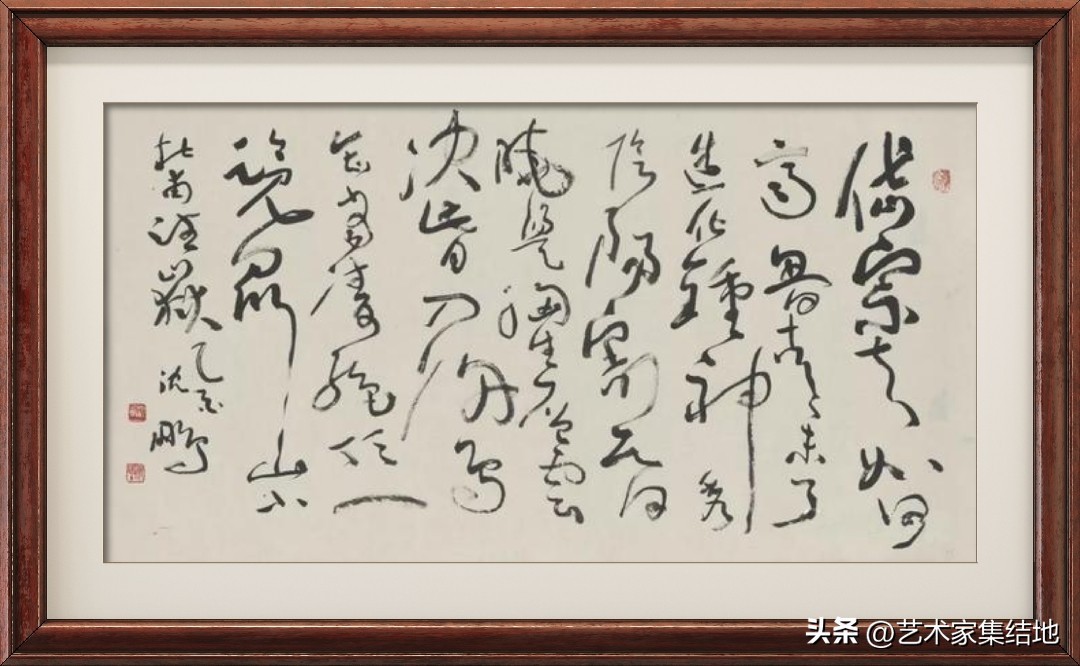 岱宗夫如何
齊魯青未了
造化鍾神秀
陰陽割昏
曉盪胸生層雲
決眥入歸鳥
會當凌絕頂一
覽眾山小
杜甫望嶽乙酉
沈鵬
头条 @艺术家集结地